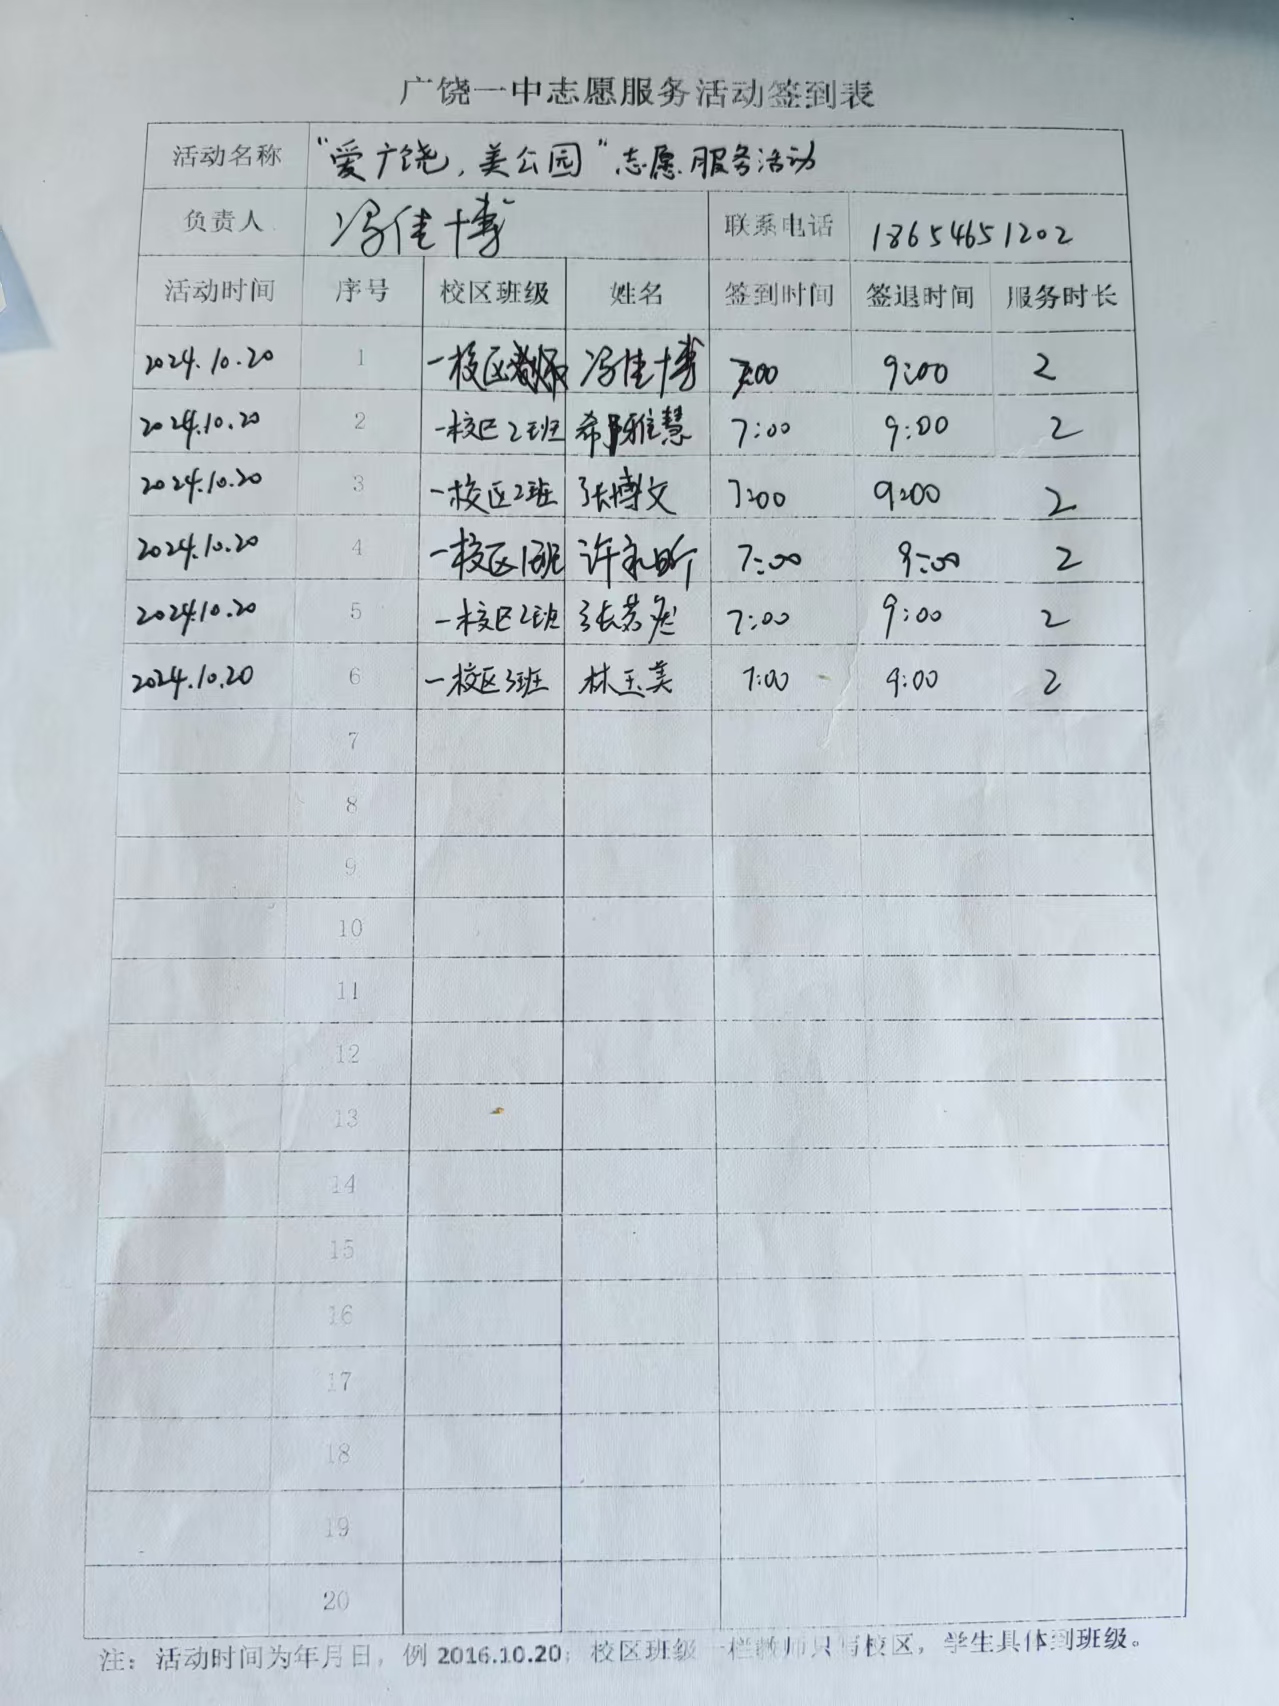 广饶一中志愿服务活动签到表
活动名称 "爱广饶，美公园"志愿服务活动
负责人 冯佳博 联系电话 18654651202
活动时间 序号 校区班级 姓名 签到时间 签退时间 服务时长
2024.10.20 1 一校区教师 冯佳博 7:00 9:00 2
2024.10.20 2 一校区2班 雅慧 7:00 9:00 2
2024.10.20 3 一校区2班 张博文 7:00 9:00 2
2024.10.20 4 一校区1班 许 昕 7:00 9:00 2
2024.10.20 5 一校区2班 张若 7:00 9:00 2
2024.10.20 6 一校区3班 林玉美 7:00 9:00 2
7
8
9
10
11
12
13
14
15
16
17
18
19
20
注：活动时间为年月日，例 2016.10.20；校区班级一栏教师只写校区，学生具体到班级。